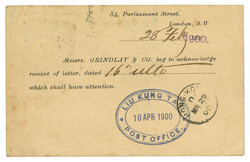 54, Parliament Street,
London, S.W
28 Feb 1900.
Messrs GRINDLAY & CO. beg to acknowledge
receipt of letter, dated 16th ulto
which shall have attention.
LIU KUNG TAN
10 APR 1900
POST OFFICE
MR 29
00